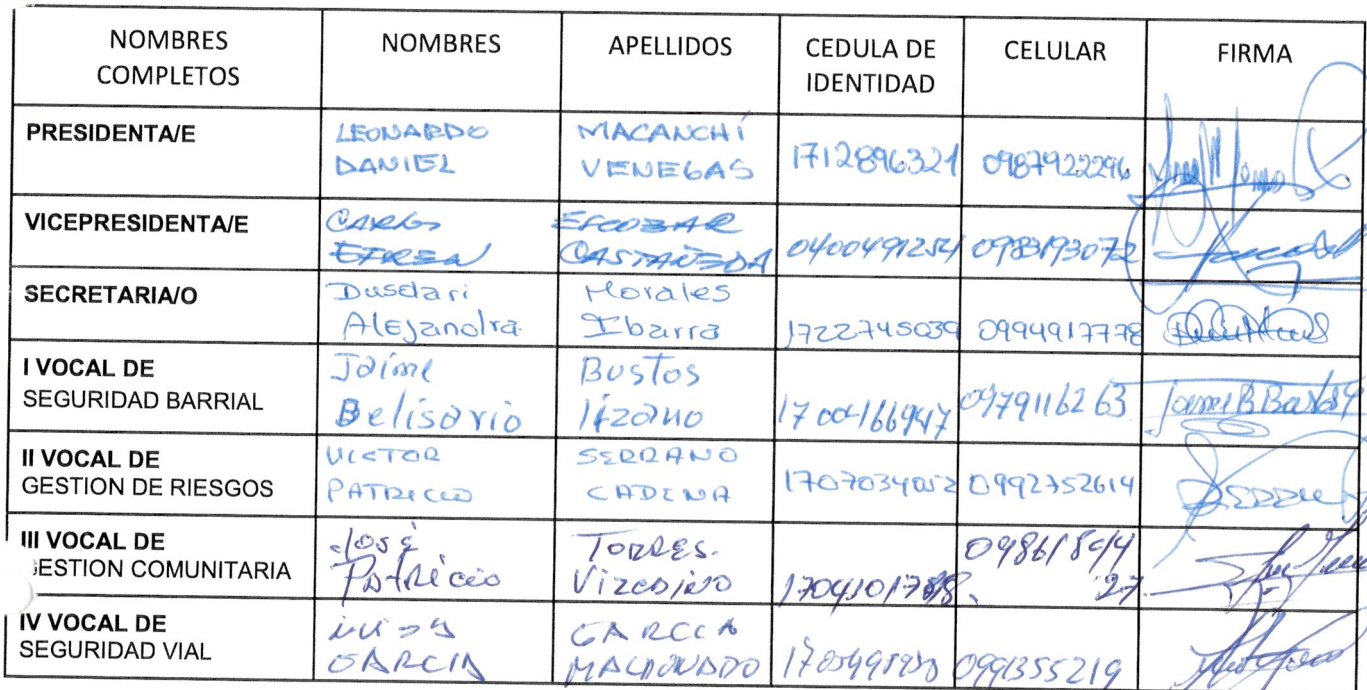 NOMBRES COMPLETOS NOMBRES APELLIDOS CEDULA DE IDENTIDAD CELULAR FIRMA
PRESIDENTA/E LEONARDO DANIEL MACANCHÍ VENEGAS 1712896321 0987922296
VICEPRESIDENTA/E CARLOS EFREN ESCOBAR CASTAÑEDA 0400491254 0983193072
SECRETARIA/O Dusdari Alejandra Morales Ibarra 1722745039 0994917778
I VOCAL DE SEGURIDAD BARRIAL Jaime Belisario Bustos 0979116263
II VOCAL DE GESTION DE RIESGOS VICTOR PATRICIO SERRANO CADENA 1707034052 0992752614
III VOCAL DE GESTION COMUNITARIA José Patricio Torres. Vizcaino
IV VOCAL DE SEGURIDAD VIAL GARCIA GARCIA MALDONADO 0991355219